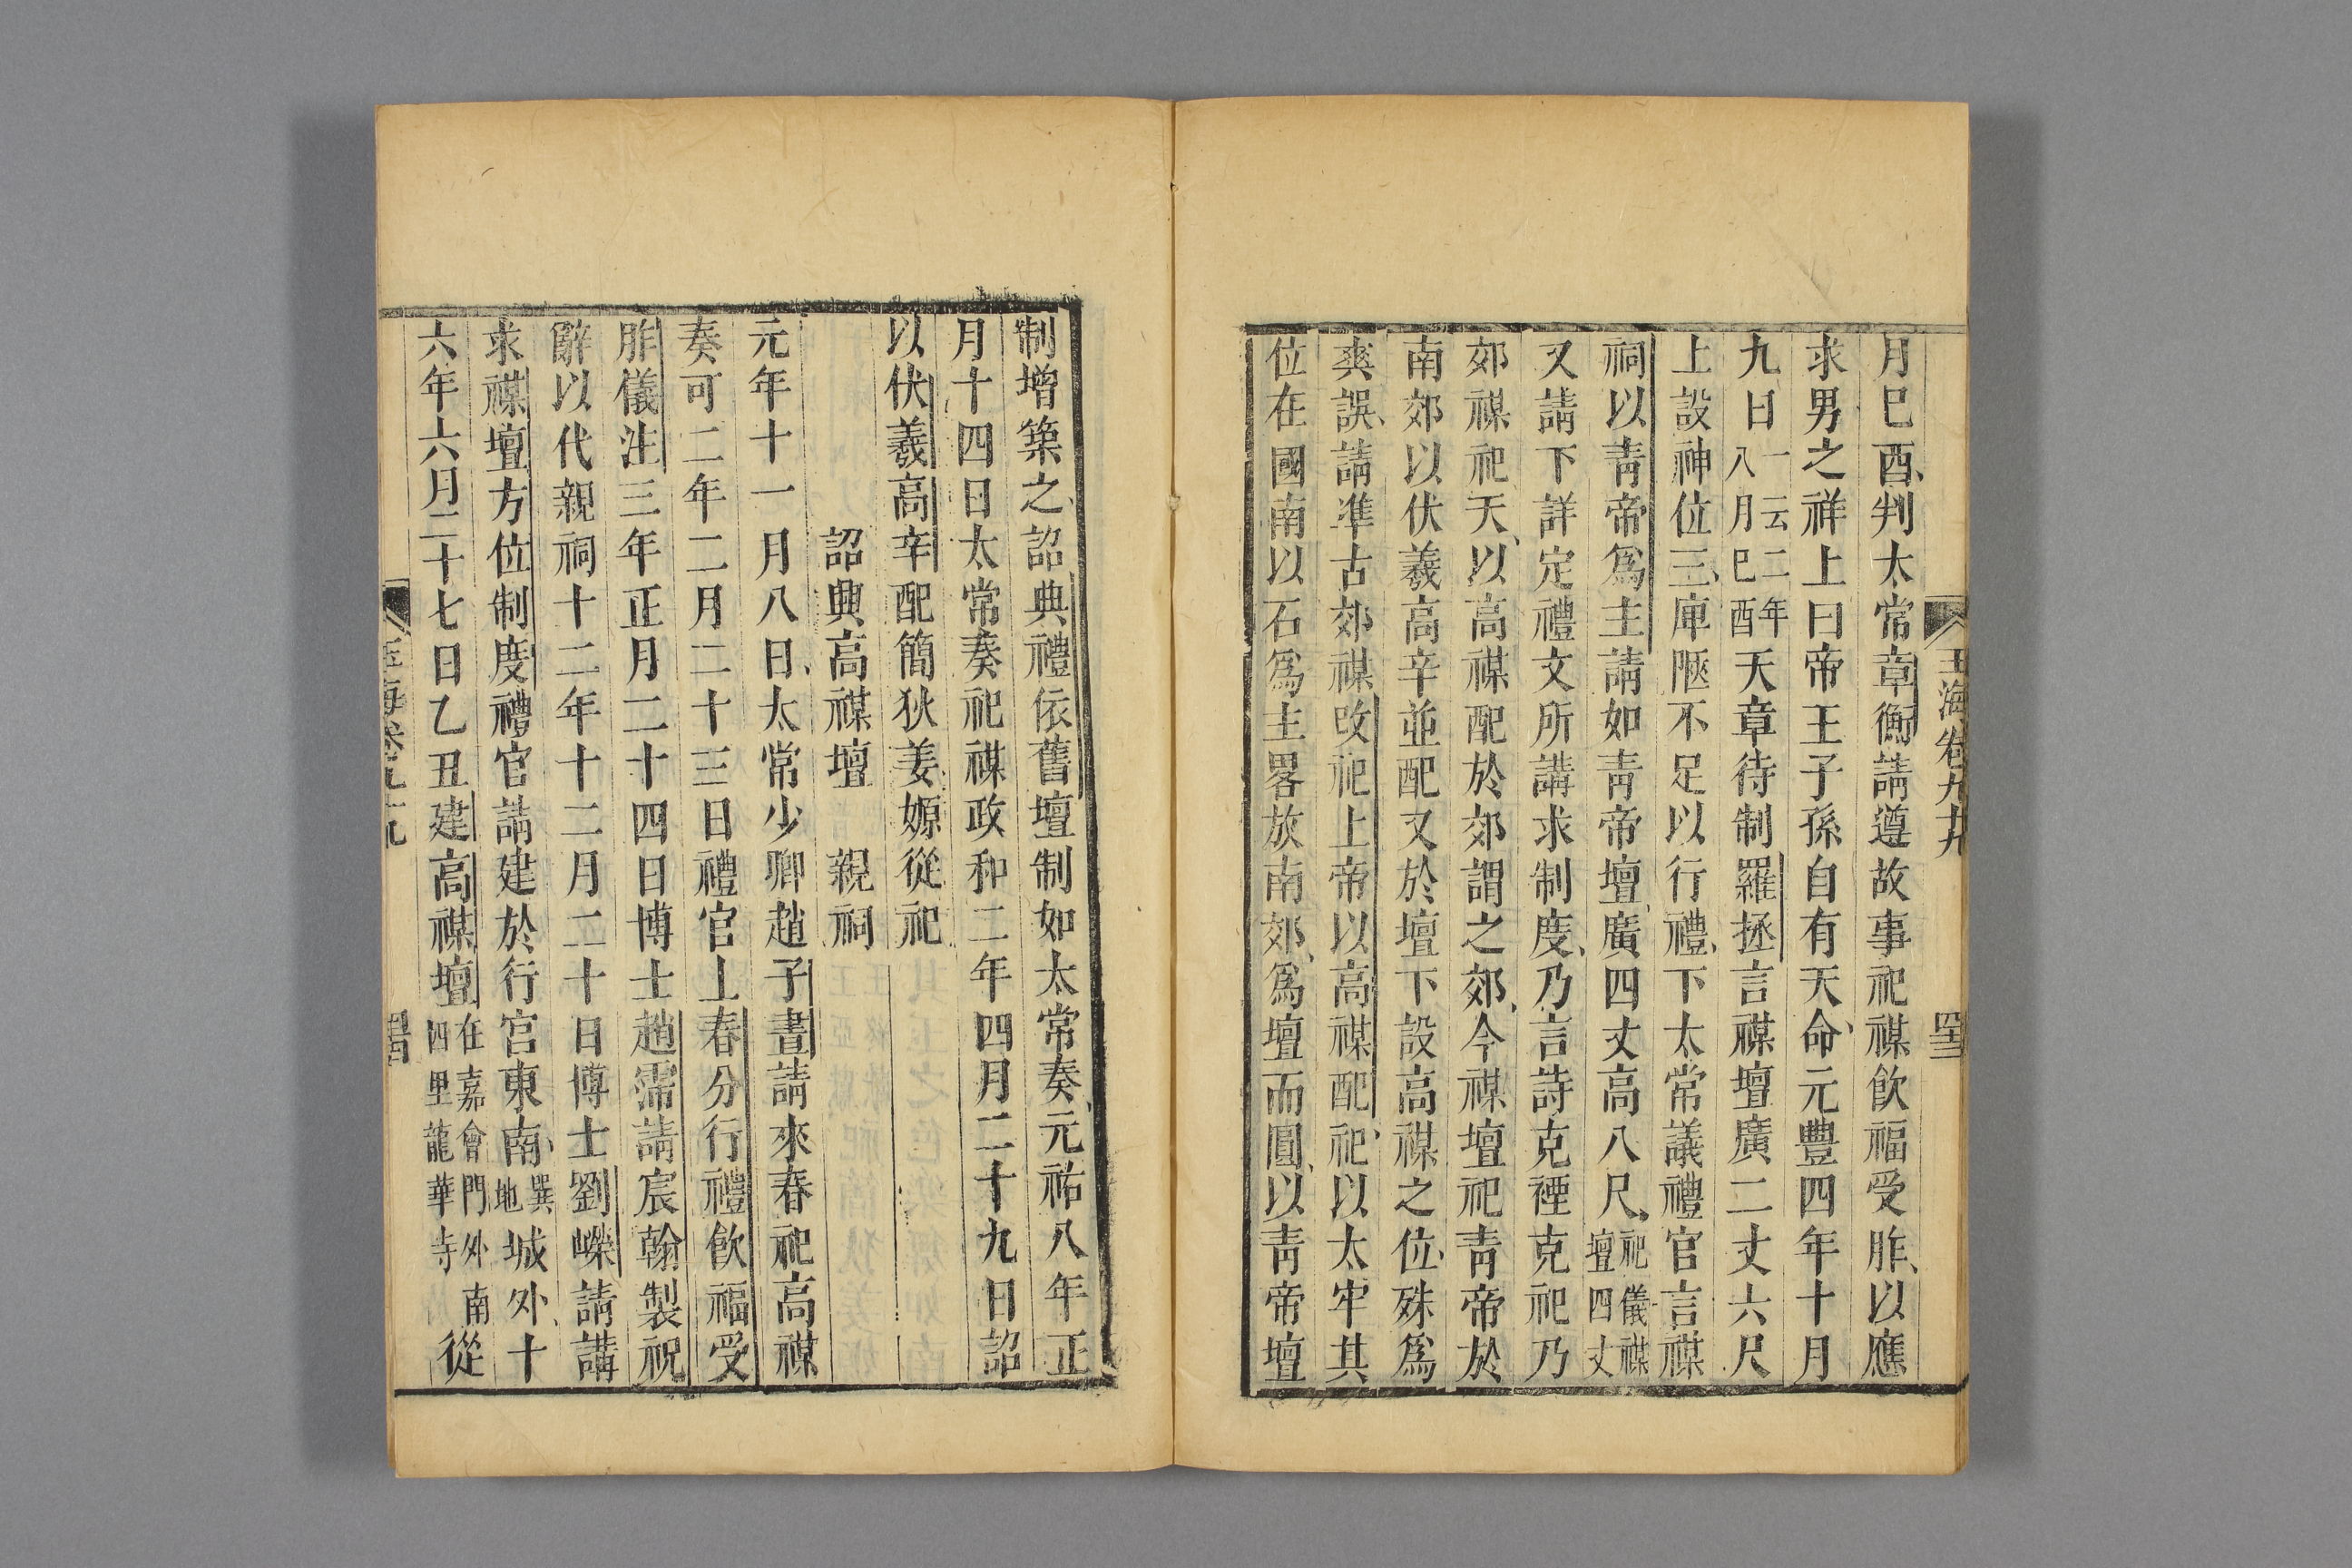 玉海卷九十九 四十三
月巳酉判太常章衡請遵故事祀禖飲福受胙以應
求男之祥上曰帝王子孫自有天命元豐四年十月
九日一云二年八月巳酉天章待制羅拯言禖壇廣二丈六尺
上設神位三庳陋不足以行禮下太常議禮官言禖
祠以青帝爲主請如青帝壇廣四丈高八尺祀儀禖壇四丈
又請下詳定禮文所講求制度乃言詩克禋克祀乃
郊禖祀天以高禖配於郊謂之郊今禖壇祀青帝於
南郊以伏羲高辛並配又於壇下設高禖之位殊爲
爽誤請準古郊禖改祀上帝以高禖配祀以太牢其
位在國南以石爲主畧放南郊爲壇而圓以青帝壇
制增築之詔典禮依舊壇制如太常奏元祐八年正
月十四日太常奏祀禖政和二年四月二十九日詔
以伏羲高辛配簡狄姜嫄從祀
詔興高禖壇 親祠
元年十一月八日太常少卿趙子晝請來春祀高禖
奏可二年二月二十三日禮官上春分行禮飲福受
胙儀注三年正月二十四日博士趙霈請宸翰製祝
辭以代親祠十二年十二月二十日博士劉嶸請講
求禖壇方位制度禮官請建於行宮東南巽地城外十
六年六月二十七日乙丑建高禖壇在嘉會門外南四里龍華寺從
玉海卷九十九